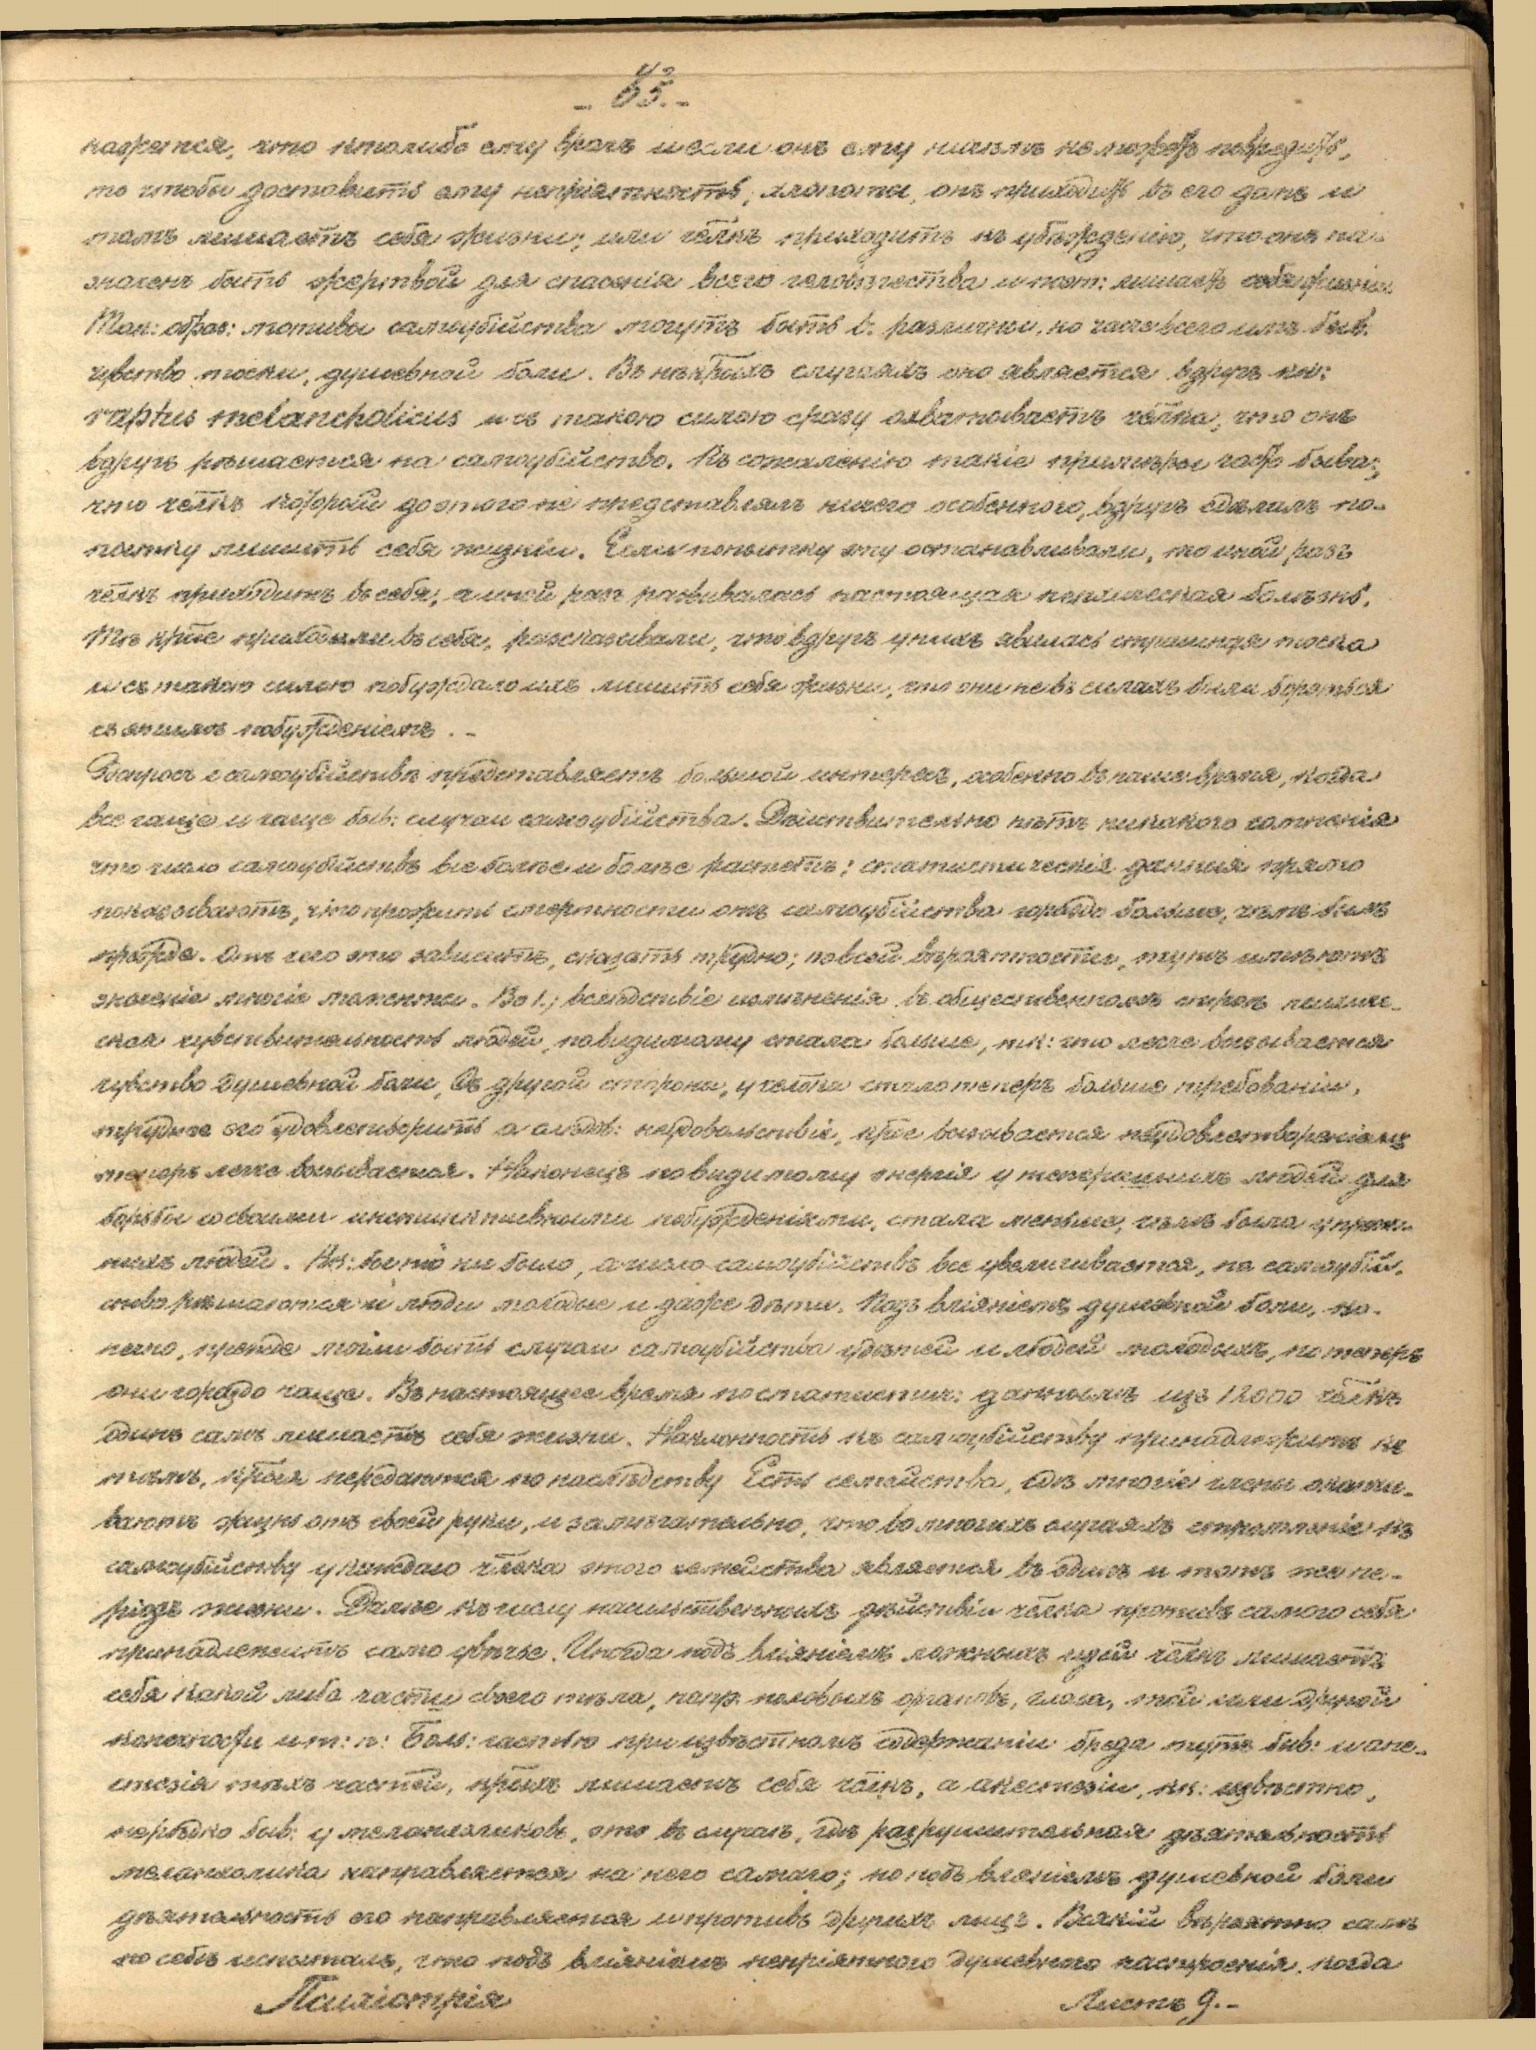 - 65. -
кажется, что ктолибо ему врагъ и если онъ ему никакъ не можетъ повредить,
то чтобы доставить ему непріятность, хлопоты, онъ приходитъ въ его домъ и
тамъ лишаетъ себя жизни; или чел͞къ приходитъ къ убѣжденію, что онъ на-
значенъ быть жертвой для спасенія всего человѣчества и поэт: лишаетъ себя жизни.
Так: образ: мотивы самоубійства могутъ быть в. различны, но чаще всего имъ быв:
чувство тоски, душевной боли. Въ нѣк͞рыхъ случаяхъ оно является вдругъ кк:
raptus melancholicus и съ такою силою сразу охватываетъ чел͞ка, что онъ
вдругъ рѣшается на самоубійство. Къ сожаленію такіе примѣры часто быва:,
что чел͞къ который до этого не представлялъ ничего особенного, вдругъ сдѣлалъ по-
пытку лишить себя жизни. Если попытку эту останавливали, то иной разъ
чел͞къ приходитъ въ себя, а иной разъ развивалась настоящая психическая болѣзнь.
Тѣ кр͞ые приходили въ себя, разсказывали, что вдругъ у нихъ явилась страшная тоска
и съ такою силою побуждало ихъ лишить себя жизни, что они не въ силахъ были бороться
съ этимъ побужденіемъ. -
Вопросъ о самоубійствѣ представляетъ большой интересъ, особенно въ наше время, когда
все чаще и чаще быв: случаи самоубійства. Дѣйствительно нѣтъ никакого сомненія
что число самоубійствъ все болѣе и болѣе растетъ; статистическія данныя прямо
показываютъ, что процентъ смертности отъ самоубійства гораздо больше, чѣмъ былъ
прежде. Отъ чего это зависитъ, сказать трудно; по всей вѣроятности, тутъ имѣютъ
значеніе многіе моменты. Во 1., вслѣдствіе измѣненія въ общественномъ строѣ психиче-
ская чувствительность людей, повидимому стала больше, тк: что легче вызывается
чувство душевной боли, Съ другой стороны, у чел͞ка стало теперь больше требованій,
труднѣе его удовлетворить а слѣдов: недовольствіе, кр͞ое вызывается неудовлетвореніемъ
теперь легче вызывается. Наконецъ повидимому энергія у теперешнихъ людей для
борьбы со своими инстинктивными побужденіями, стала меньше, чѣмъ была у преж-
нихъ людей. Кк: бы то ни было, а число самоубійствъ все увеличивается, на самоубій-
ство рѣшаются и люди молодые и даже дѣти. Подъ вліяніемъ душевной боли, ко-
нечно, прежде могли быть случаи самоубійства у дѣтей и людей молодыхъ, но теперь
они гораздо чаще. Въ настоящее время по статистич: даннымъ изъ 12000 чел͞къ
одинъ самъ лишаетъ себя жизни. Наклонность къ самоубійству принадлежитъ къ
тѣмъ, кр͞ыя передаются по наслѣдству Есть семейства, гдѣ многіе члены оканчи-
ваютъ жизнь отъ своей руки, и замѣчательно, что во многихъ случаяхъ стремленіе къ
самоубійству у каждаго чел͞ка этого семейства является въ одинъ и тотъ же пе-
ріодъ жизни. Далѣе къ числу насильственныхъ дѣйствій чел͞ка противъ самого себя
принадлежитъ само увѣчье. Иногда подъ вліяніемъ ложныхъ идей чел͞къ лишаетъ
себя какой либо части своего тѣла, напр. половыхъ органовъ, глаза, той или другой
конечности и т: п: Больш: частью при извѣстномъ содержаніи бреда тутъ быв: и ане-
стезія тѣхъ частей, кр͞ыхъ лишаетъ себя чел͞къ, а анестезіи, кк: извѣстно,
нерѣдко быв: у меланхоликовъ, это въ случаѣ, гдѣ разрушительная дѣятельность
меланхолика направляется на него самого; но подъ вліяніемъ душевной боли
дѣятельность его направляется и противъ другихъ лицъ. Всякій вѣроятно самъ
по себѣ испыталъ, что подъ вліяніемъ непріятного душевного настроенія, когда
Психіатрія Листъ 9. -